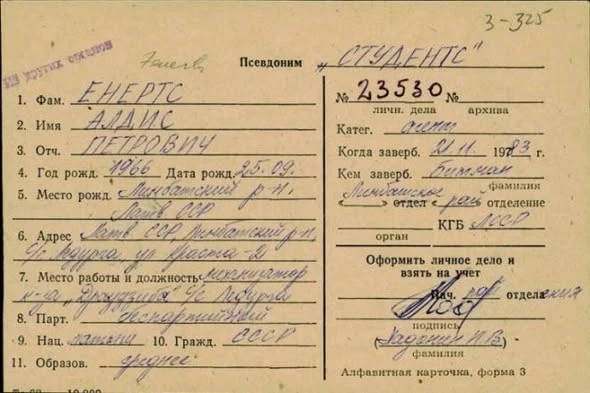 3-325
Псевдоним „СТУДЕНТС"
1. Фам. ЕНЕРТС
2. Имя АЛДИС
3. Отч. ПЕТРОВИЧ
4. Год рожд. 1966 Дата рожд. 25.09.
5. Место рожд. Лимбажский р-н,
Латв ССР
6. Адрес Латв. ССР, Лимбажский р-н,
с/с Ледурга, ул
7. Место работы и должность механизатор
к-за „Драудзиба" с/с Ледурга
8. Парт. беспартийный
9. Нац. латыш 10. Гражд. СССР
11. Образов. среднее
№ 23530 №
личн. дела архива
Катег. агент
Когда заверб. 21 11 1983 г.
Кем заверб.
фамилия
Лимбажское
отдел рай отделение
КГБ ЛССР
орган
Оформить личное дело и
взять на учет
Нач. рай отделения
подпись
фамилия
Алфавитная карточка, форма 3